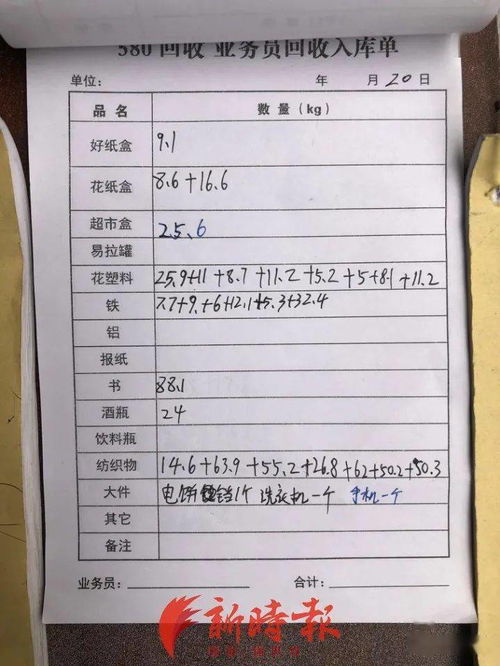 580 回收 业务员回收入库单
单位： 年 月20日
品名 数量（kg）
好纸盒 9.1
花纸盒 8.6+16.6
超市盒 25.6
易拉罐
花塑料 25.9+11+8.7+11.2+5.2+5+8.1+11.2
铁 7.7+9.+6+12.1+5.3+32.4
铝
报纸
书 88.1
酒瓶 24
饮料瓶
纺织物 14.6+63.9+55.2+26.8+62+50.2+50.3
大件 电饼铛1个 洗衣机一个 手机一个
其它
备注
业务员： 合计：
新時報